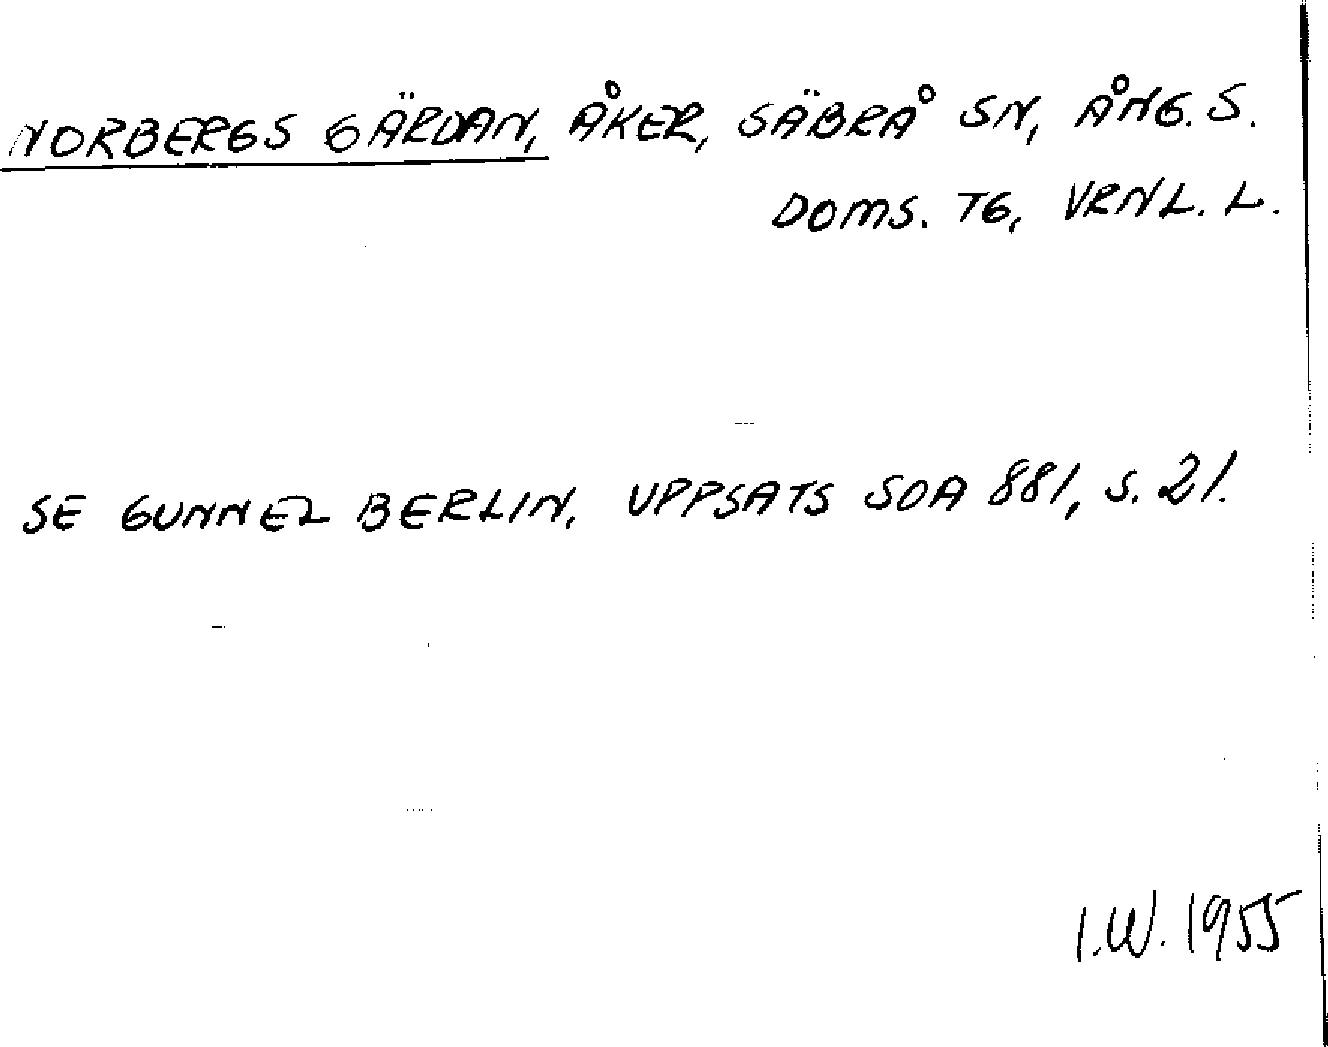 NORBERGS GÄRDAN, ÅKER, SÄBRÅ SN, ÅNG. S.
DOMS. TG, VRNL. L.
SE GUNNEL BERLIN, UPPSATS SOA 881, S. 21.
I.W. 1955